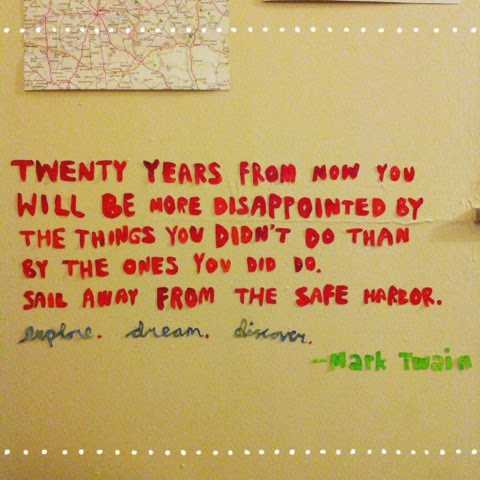 TWENTY YEARS FROM NOW YOU
WILL BE MORE DISAPPOINTED BY
THE THINGS YOU DIDN'T DO THAN
BY THE ONES YOU DID DO.
SAIL AWAY FROM THE SAFE HARBOR.
explore. dream. discover.
—Mark Twain